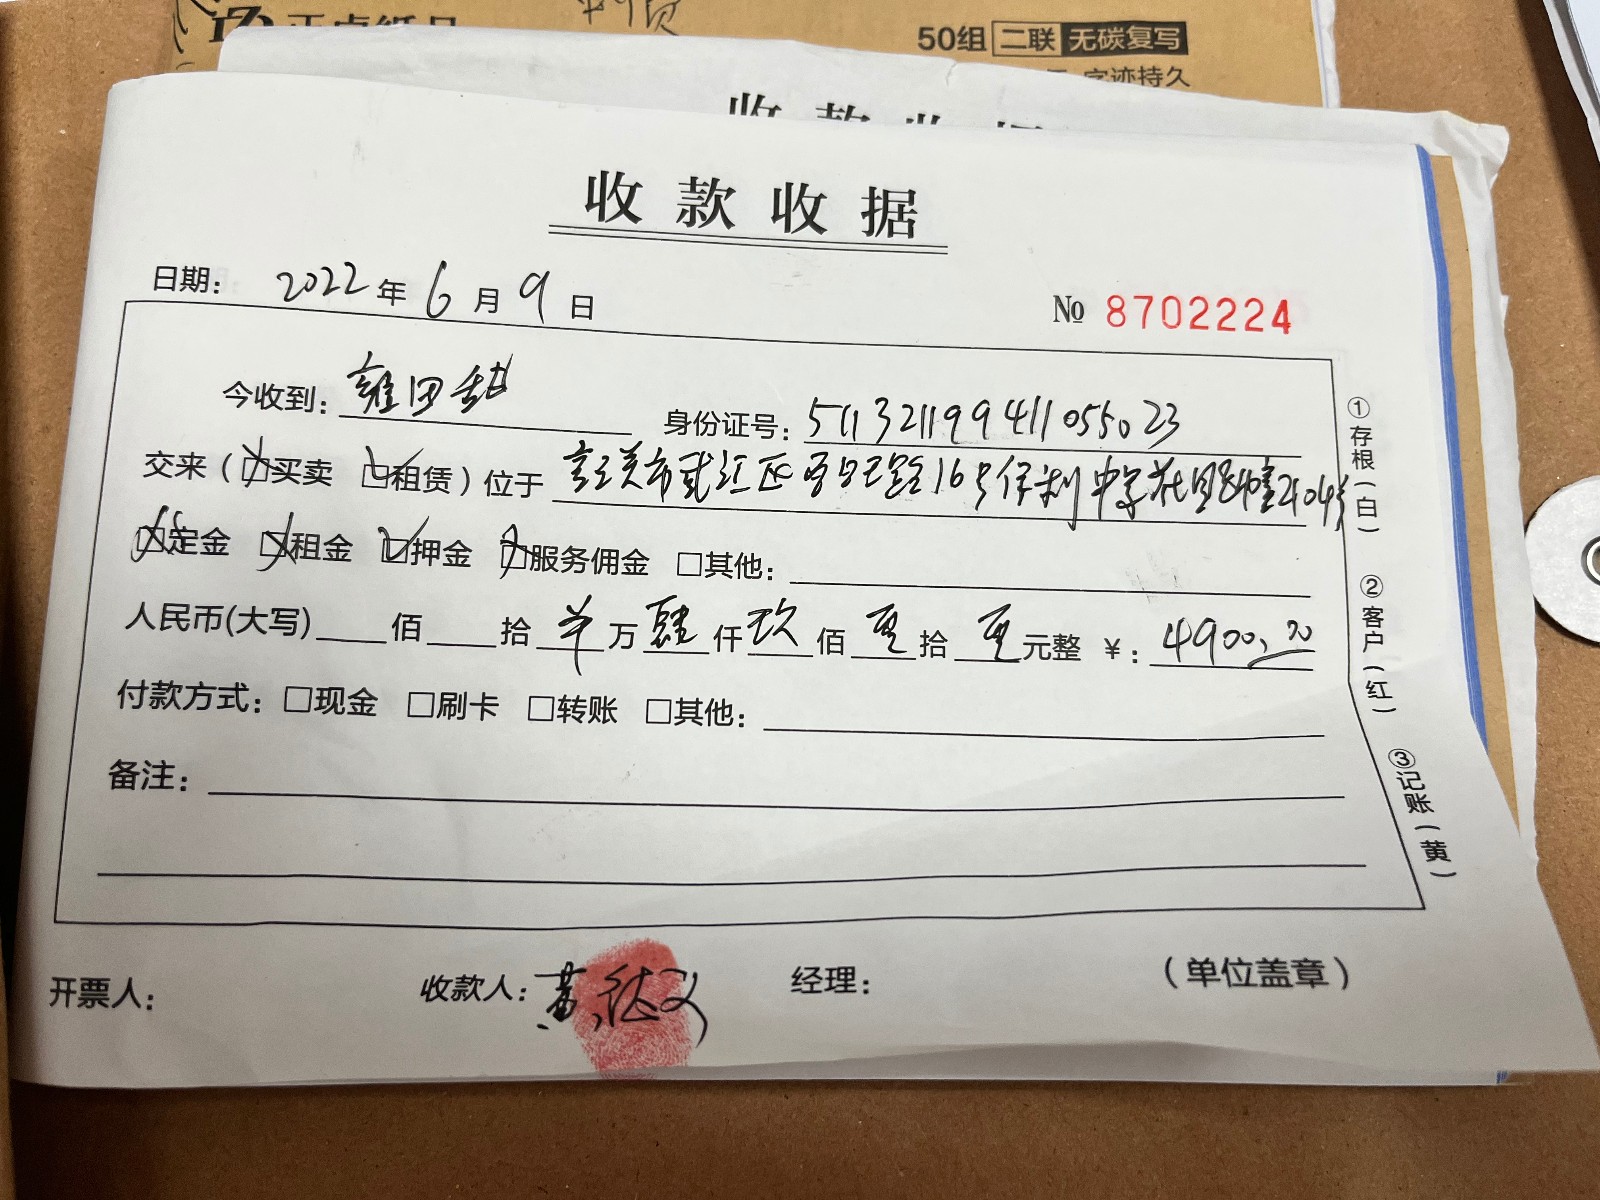 正卓纸品
50组 二联 无碳复写
字迹持久
收款收据
收款收据
日期: 2022年6月9日
№ 8702224
今收到: 雍田甜 身份证号: 511321199411055023
交来(□买卖 ☑租赁)位于 武江区 16号保利中宇花园 2104
□定金 □租金 ☑押金 □服务佣金 □其他:
人民币(大写) 佰 拾 万 肆仟 玖佰 零拾 零元整 ¥: 4900.00
付款方式: □现金 □刷卡 □转账 □其他:
备注:
开票人: 收款人: 黄 经理: (单位盖章)
①存根(白)
②客户(红)
③记账(黄)